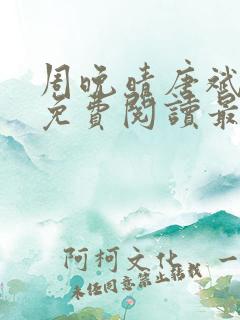 周晚晴唐斌
免費閱讀最
阿柯文化 一
未经同意禁止转载